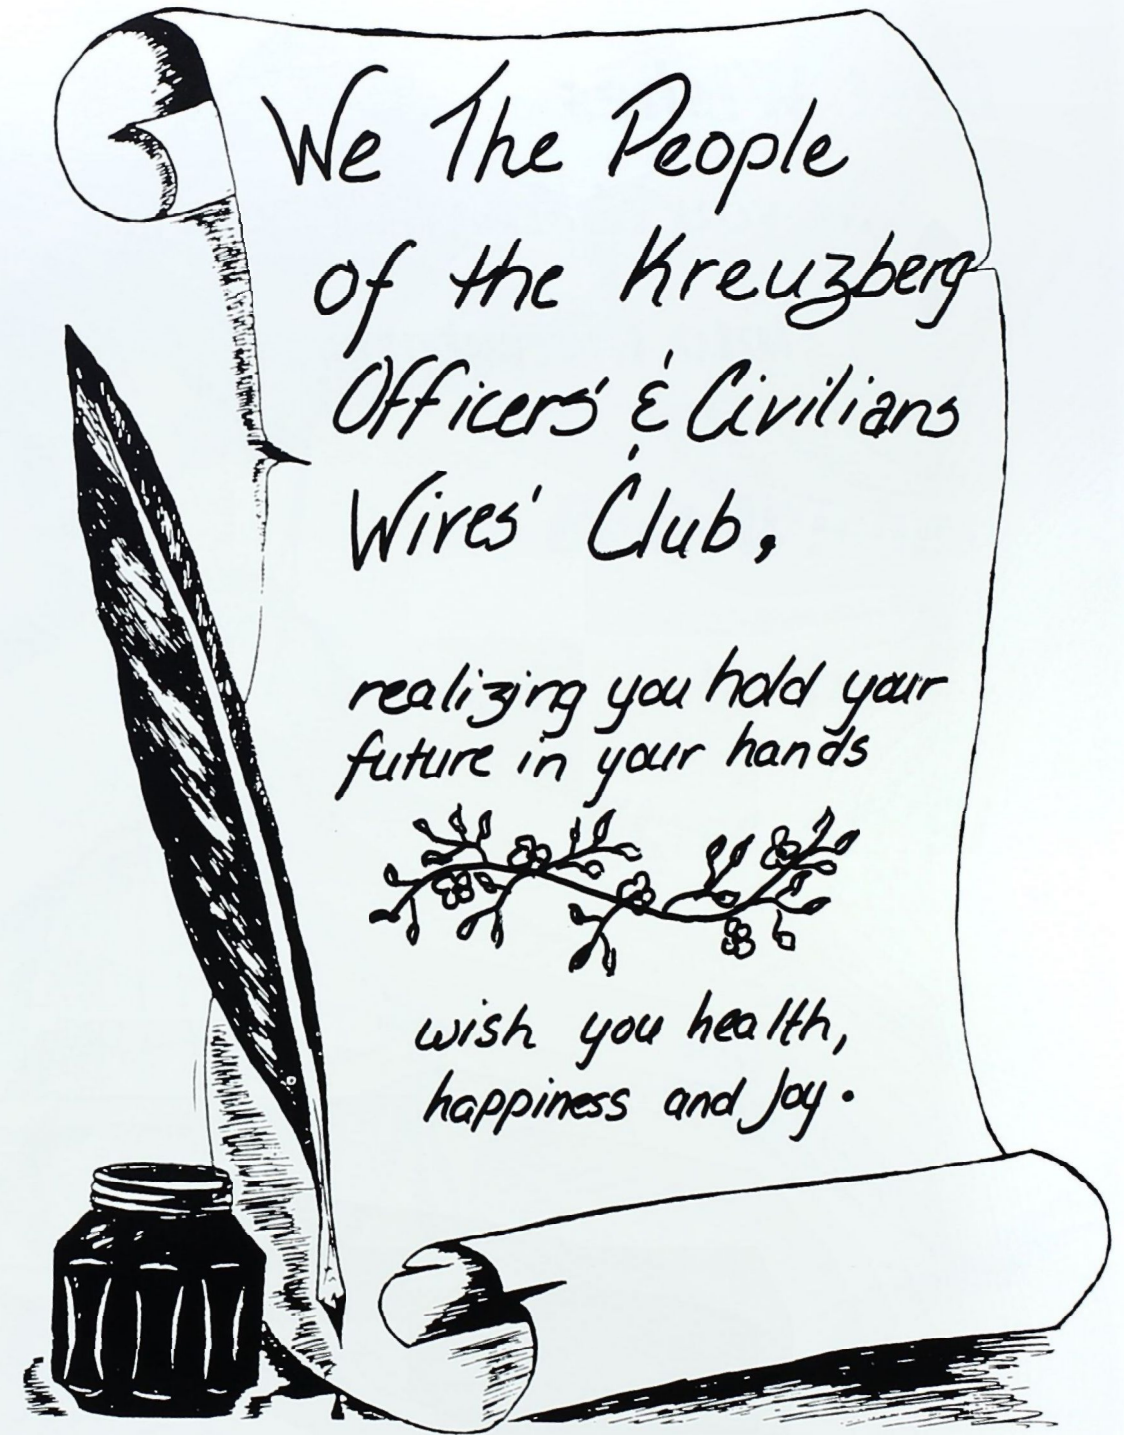 We The People
of the Kreuzberg
Officers' & Civilians
Wives' Club,
realizing you hold your
future in your hands
wish you health,
happiness and Joy.